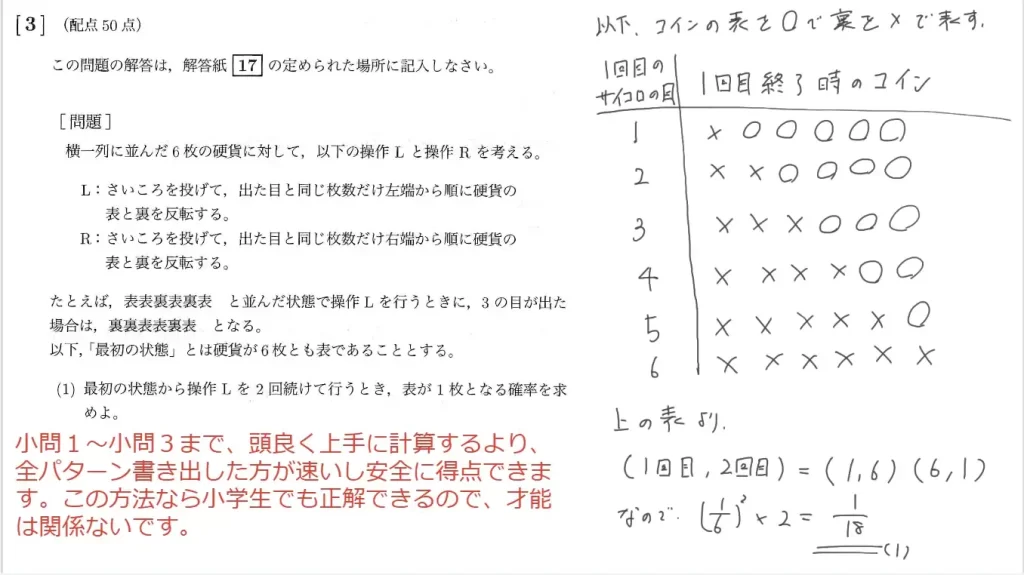 [3] (配点50点)
この問題の解答は,解答紙 17 の定められた場所に記入しなさい。
[問題]
横一列に並んだ6枚の硬貨に対して,以下の操作Lと操作Rを考える。
L:さいころを投げて,出た目と同じ枚数だけ左端から順に硬貨の
表と裏を反転する。
R:さいころを投げて,出た目と同じ枚数だけ右端から順に硬貨の
表と裏を反転する。
たとえば,表表裏表裏表 と並んだ状態で操作Lを行うときに,3の目が出た
場合は,裏裏表表裏表 となる。
以下,「最初の状態」とは硬貨が6枚とも表であることとする。
(1) 最初の状態から操作Lを2回続けて行うとき,表が1枚となる確率を求
めよ。
小問1~小問3まで、頭良く上手に計算するより、
全パターン書き出した方が速いし安全に得点できま
す。この方法なら小学生でも正解できるので、才能
は関係ないです。
以下、コインの表を○で裏を×で表す.
1回目の
サイコロの目 1回目終了時のコイン
1 × ○ ○ ○ ○ ○
2 × × ○ ○ ○ ○
3 × × × ○ ○ ○
4 × × × × ○ ○
5 × × × × × ○
6 × × × × × ×
上の表より.
(1回目, 2回目) = (1,6) (6,1)
なので. (1/6)² × 2 = 1/18 (1)